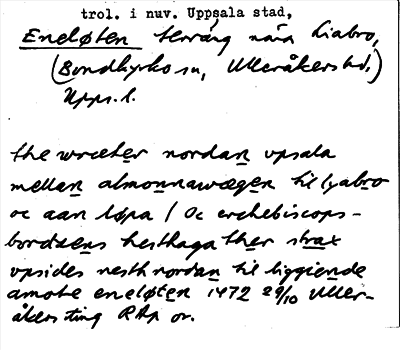 trol. i nuv. Uppsala stad,
Eneløten terräng nära Liabro,
(Bondkyrko sn, Ulleråkers hd,)
Upps. l.
the wræter nordan vpsala
mellan almonnawægen til lyabro
oc aan løpa / Oc erchebiscops-
bordzens hesthaga ther strax
vpsides nesth nordan til liggiende
amote eneløten 1472 29/10 Uller-
åkers ting RAp or.